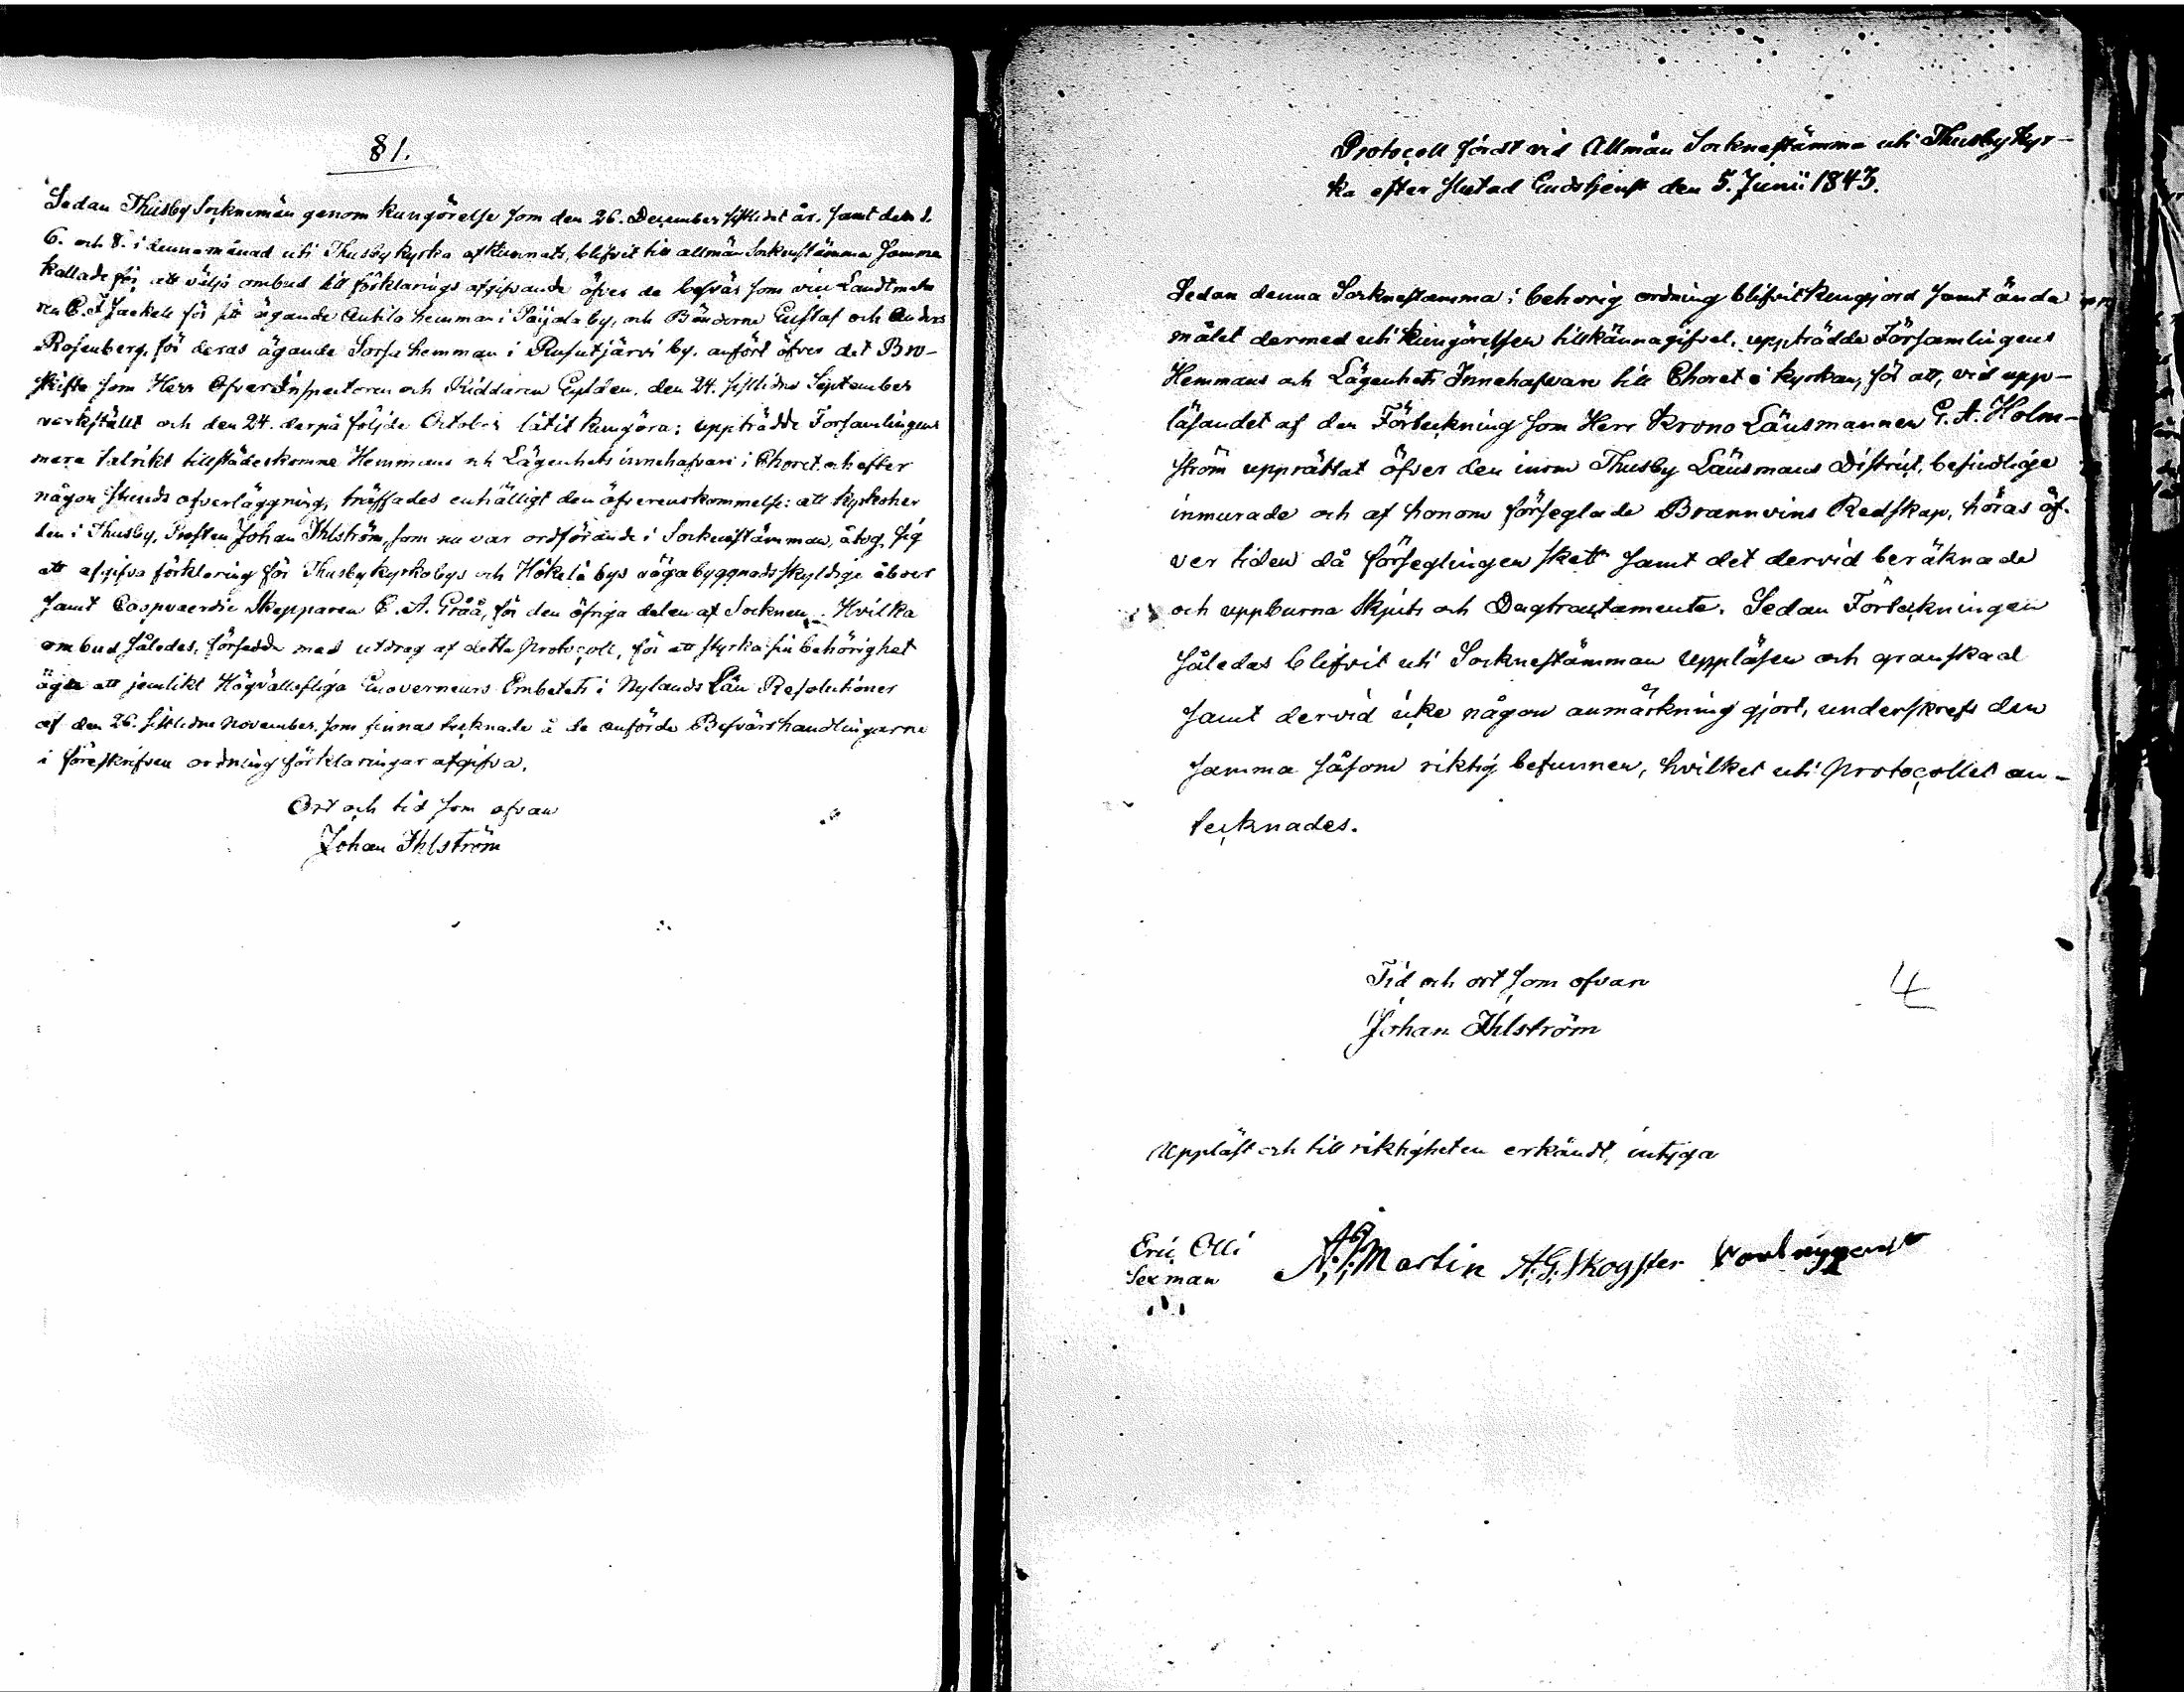 § 1.
Sedan Thusby Socknemän genom kungörelse som den 26. December sistledit år, samt den 1.
6. och 8. i denna månad uti Thusby kyrka afkunnats, blifvit till allmän Sockenstämma samman
kallade för att välja ombud till förklarings afgifvande öfver de besvär som vice Landtmäta
ren C. F. Jackell för sitt ägande Anttila hemman i Paijala by, och Bönderne Gustaf och Anders
Rosenberg, för deras ägande Sorsa hemman i Rusutjärvi by, anfört öfver det Bro-
skifte som Herr Öfver Inspectoren och Riddaren Gyldén, den 24. sistlidne September
verkställt och den 24. derpå följde October låtit kungöra; uppträdde Församlingens
mera talrikt tillstädeskomne Hemmans och Lägenhets innehafvare i Choret och efter
någon stunds öfverläggning, träffades enhälligt den öfverenskommelse: att kyrkoher
den i Thusby, Prosten Johan Ihlström, som nu var ordförande i Sockenstämman, åtog sig
att afgifva förklaring för Thusby kyrkobys och Hökelä bys vägabyggnadsskyldige åboer
samt Coopvaerdie Skepparen C. A. Gråå, för den öfriga delen af Socknen. Hvilka
ombud således, försedde med utdrag af detta protocoll, för att styrka sin behörighet
äga att jemlikt Högvällofliga Guoverneurs Embetets i Nylands Län Resolutioner
af den 26. sistlidne November, som finnas tecknade å de anförde Besvärshandlingarne
i föreskrifven ordning förklaringar afgifva.
Ort och tid som ofvan
Johan Ihlström
Protocoll fördt vid Allmän Socknestämma uti Thusby Kyr-
ka efter slutad Gudstjenst den 5. Junii 1843.
Sedan denna Socknestämma i behörig ordning blifvit kungjord samt ända
målet dermed uti kungörelsen tillkännagifvet, uppträdde Församlingens
Hemmans och Lägenhets Innehafvare till Choret i kyrkan, för att, vid upp-
läsandet af den Förteckning som Herr Krono Länsmannen G. A. Holm-
ström upprättat öfver den inom Thusby Länsmans District, befindlige
inmurade och af honom förseglade Brännvins Redskap, höras öf-
ver tiden då förseglingen skett samt det dervid beräknade
och uppburna Skjuts och Dagtractamente. Sedan Förteckningen
således blifvit uti Socknestämman uppläsen och granskad
samt dervid icke någon anmärkning gjort, underskrefs den
samma såsom riktig befunnen, hvilket uti Protocollet an-
tecknades.
Tid och ort som ofvan
Johan Ihlström
4
Uppläst och till riktigheten erkändt, intyga
Eric Olli
Sexman
Martin A. G. Skogster